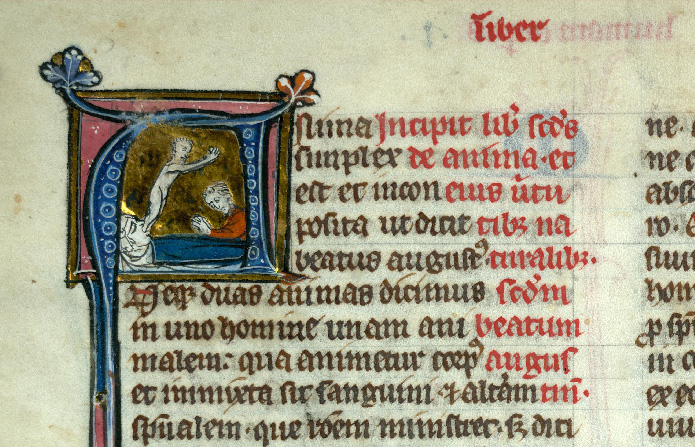 liber
A
nima Incipit lib̾ sc̄ds
simplex de anima et
est et incom eius ūtu
posita ut dicit tib; na
beatus august᾿ turalib;.
Neq; duas animas dicimus scd̄m
in uno homine unam ani beatum
malem. qua animetur corp᾿ augus
et inmixta sit sanguini ⁊ altām tinū.
spūalem. que rōem ministret. s; dici
ne
ne
abs
ro.
hom
in